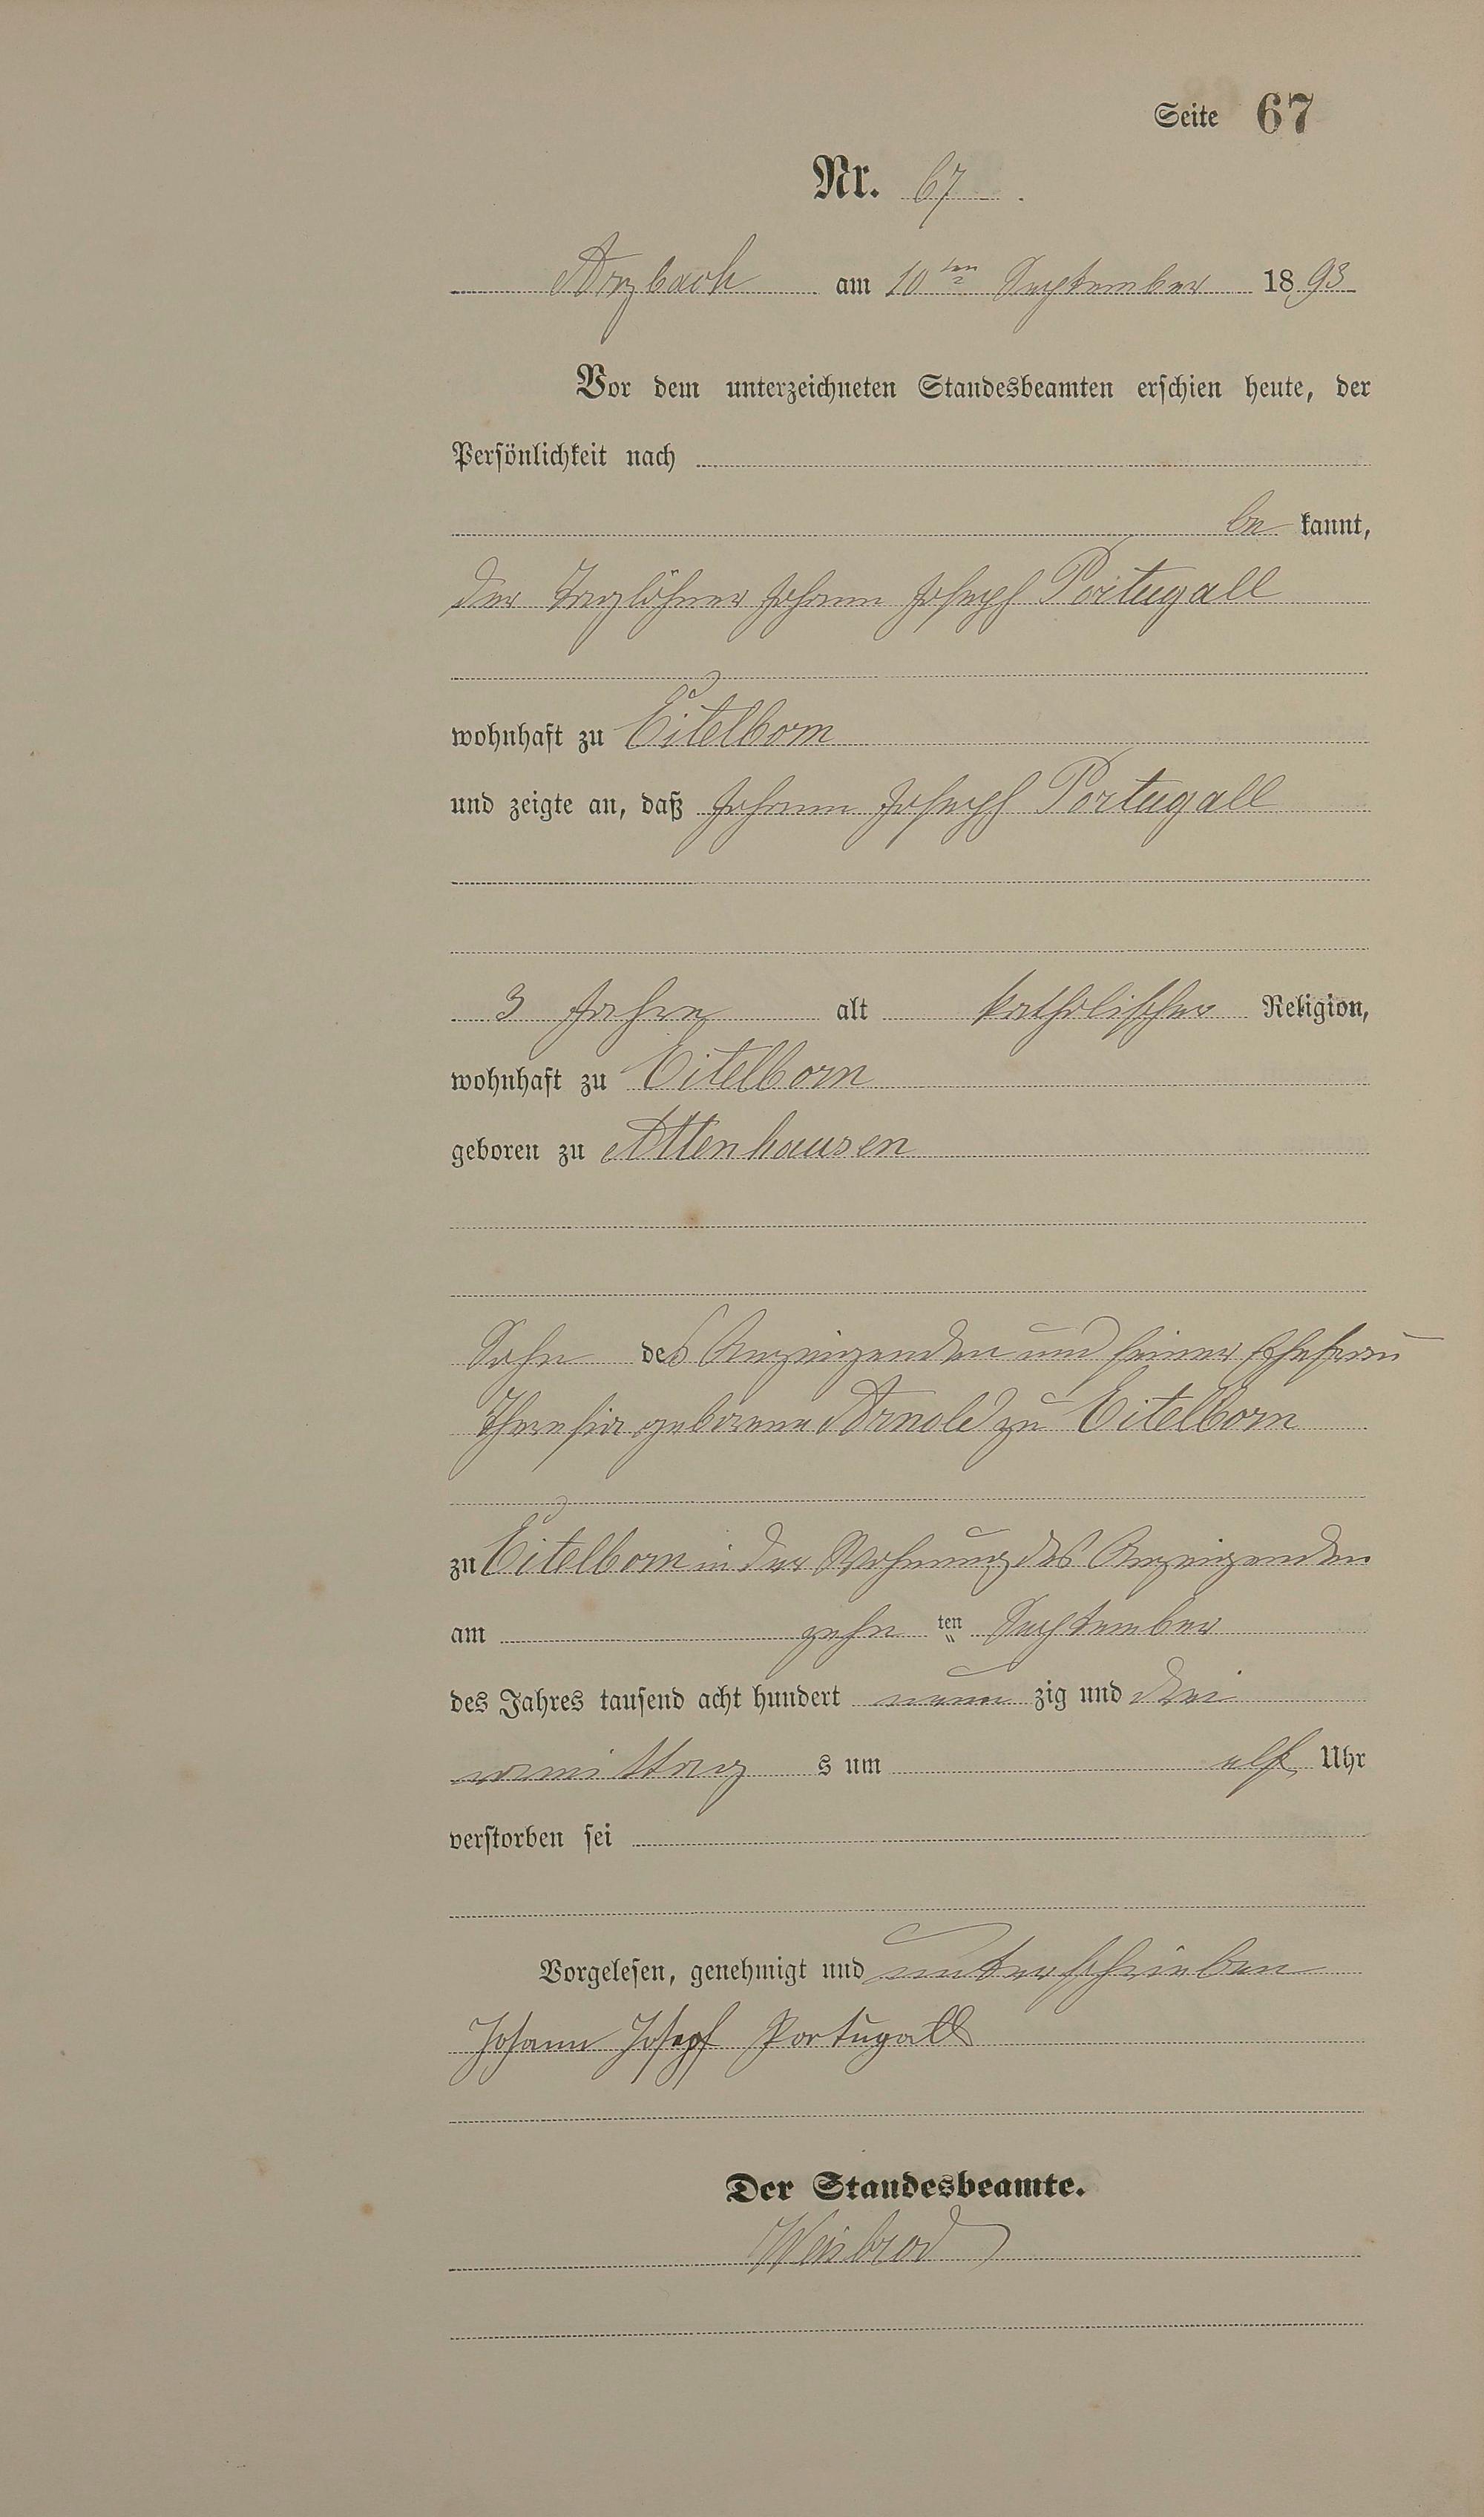 Seite 67
Nr. 67.
Arzbach am 10ten September 1893
Vor dem unterzeichneten Standesbeamten erschien heute, der
Persönlichkeit nach
be kannt,
der Taglöhner Johann Joseph Portugall
wohnhaft zu Eitelborn
und zeigte an, daß Johann Joseph Portugall
3 Jahre alt katholischer Religion,
wohnhaft zu Eitelborn
geboren zu Attenhausen
Sohn des Anzeigenden und seiner Ehefrau
Theresia geborene Arnold zu Eitelborn
zu Eitelborn in der Wohnung des Anzeigenden
am zehn ten September
des Jahres tausend acht hundert neun zig und drei
vormittag s um elf Uhr
verstorben sei
Vorgelesen, genehmigt und unterschrieben
Johann Josepf Portugall
Der Standesbeamte.
Weisbrod